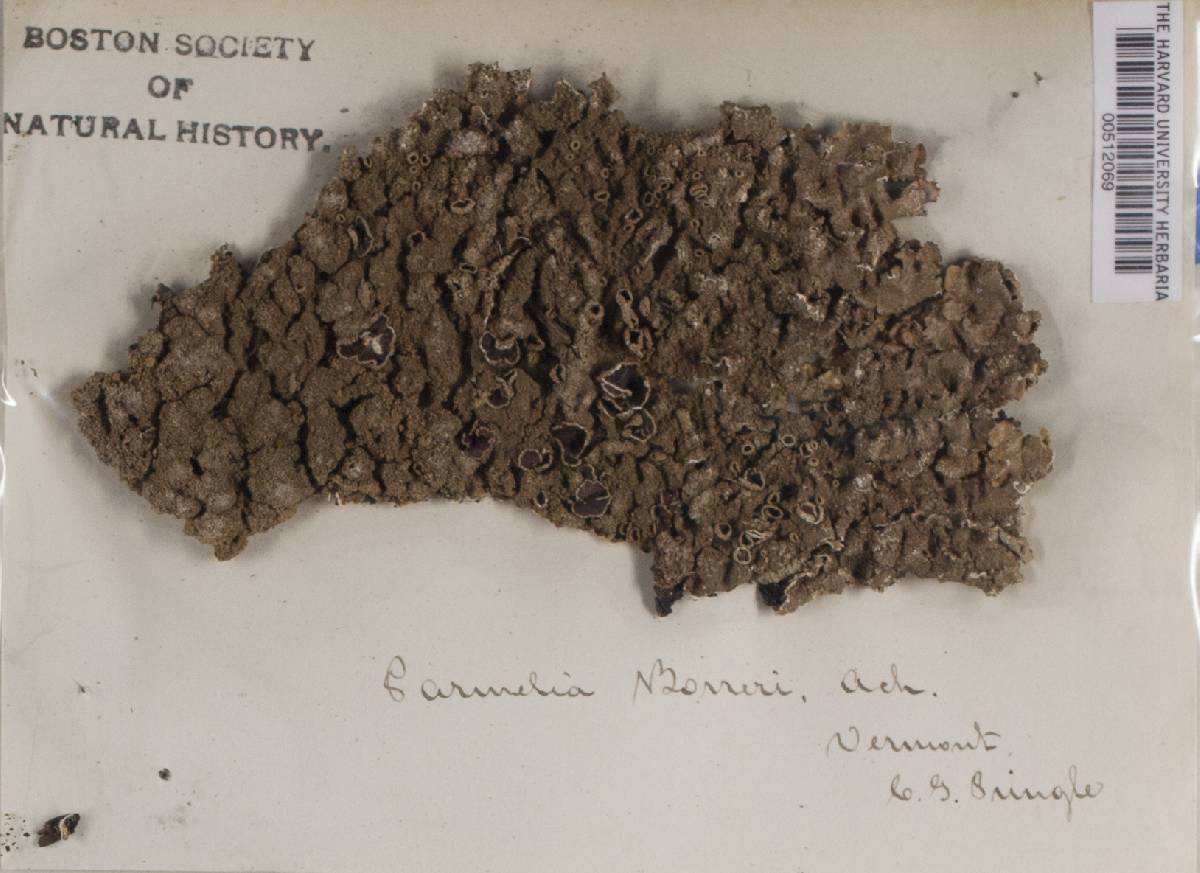 BOSTON SOCIETY
OF
NATURAL HISTORY.
THE HARVARD UNIVERSITY HERBARIA
00512069
Parmelia Borreri, Ach.
Vermont.
C. G. Pringle